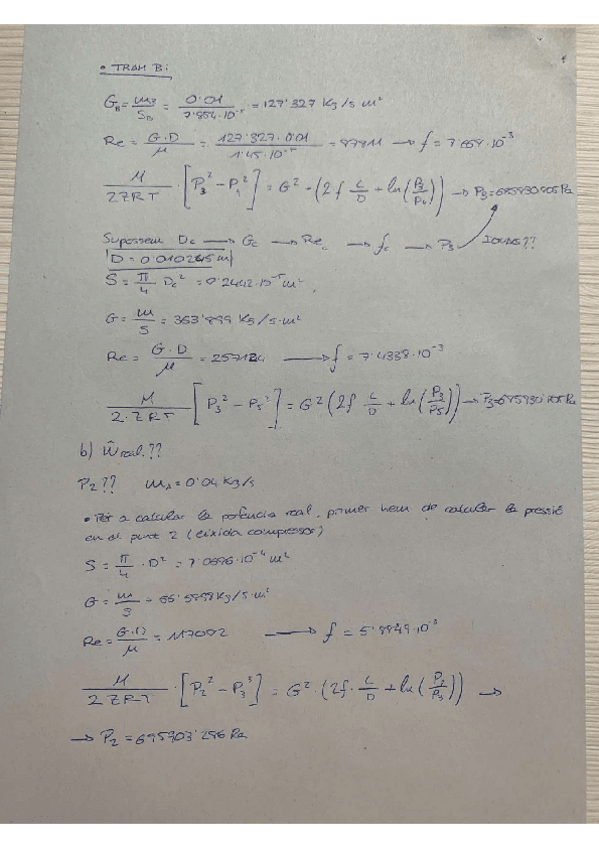 • TRAM B:
G_B = m_B/S_B = 0'01/7'854·10^-5 = 127'327 Kg/s m²
Re = G·D/μ = 127'327·0'01/1'45·10^-5 = 87811 → f = 7'659·10^-3
M/2ZRT · [P_3² - P_4²] = G² · (2f L/D + ln(P_3/P_4)) → P_3 =
Suposem D_c → G_c → Re_c → f_c → P_3 IGUALS??
D = 0'010265 m
S = π/4 D_c² = 0'2442·10^-5 m²
G = m/S = 363'899 Kg/s·m²
Re = G·D/μ = 257124 → f = 7'4338·10^-3
M/2·ZRT [P_3² - P_5²] = G² (2f L/D + ln(P_3/P_5)) → P_3 =
b) Ŵ real??
P_2?? m_A = 0'04 Kg/s
• Per a calcular la potència real, primer hem de calcular la pressió
en el punt 2 (eixida compressor)
S = π/4 · D² = 7'0696·10^-4 m²
G = m/S = Kg/s·m²
Re = G·D/μ = 117092 → f =
M/2ZRT · [P_2² - P_3³] = G² · (2f · L/D + ln(P_2/P_3)) →
→ P_2 = 695903'286 Pa